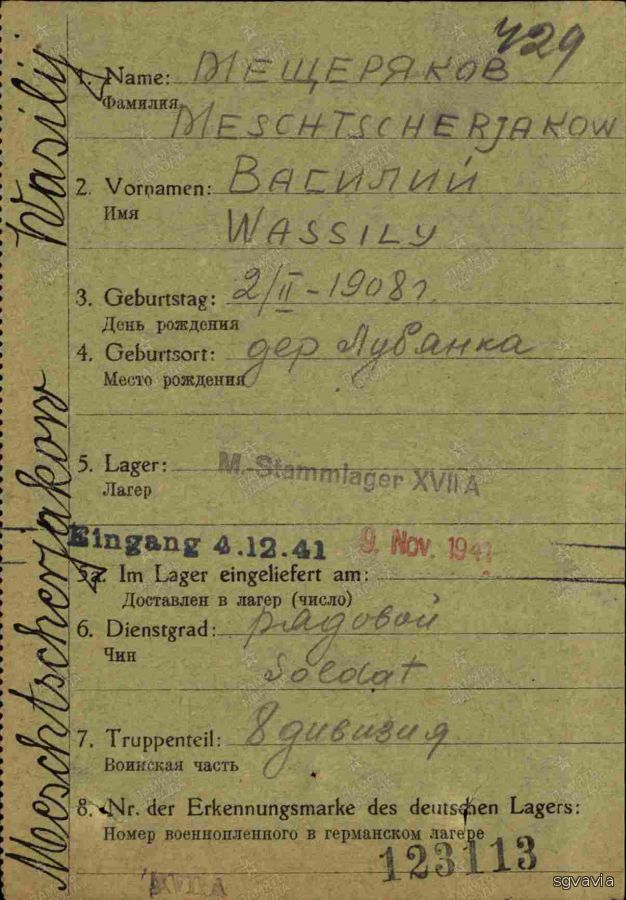 729
1. Name: МЕЩЕРЯКОВ
Фамилия
MESCHTSCHERJAKOW
2. Vornamen: ВАСИЛИЙ
Имя
WASSILY
3. Geburtstag: 2/II-1908 г.
День рождения
4. Geburtsort: дер Лубянка
Место рождения
5. Lager: M.-Stammlager XVII A
Лагер
Eingang 4.12.41 9. Nov. 1941
5a. Im Lager eingeliefert am:
Доставлен в лагер (число)
6. Dienstgrad: рядовой
Чин
Soldat
7. Truppenteil: 8 дивизия
Воинская часть
8. Nr. der Erkennungsmarke des deutschen Lagers:
Номер военнопленного в германском лагере
123113
XVII A
Meschtscherjakow Wasilij
sgvavia